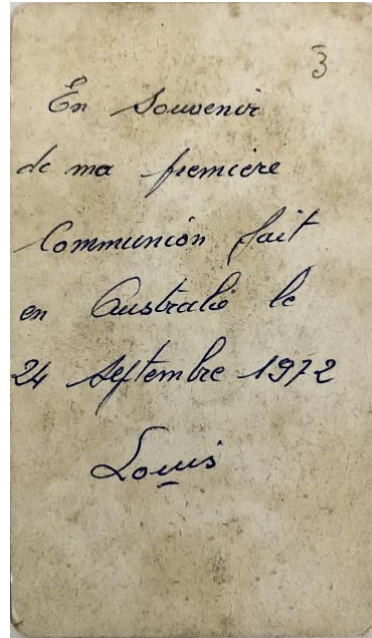 3
En Souvenir
de ma premiere
Communion fait
en Australie le
24 septembre 1972
Louis